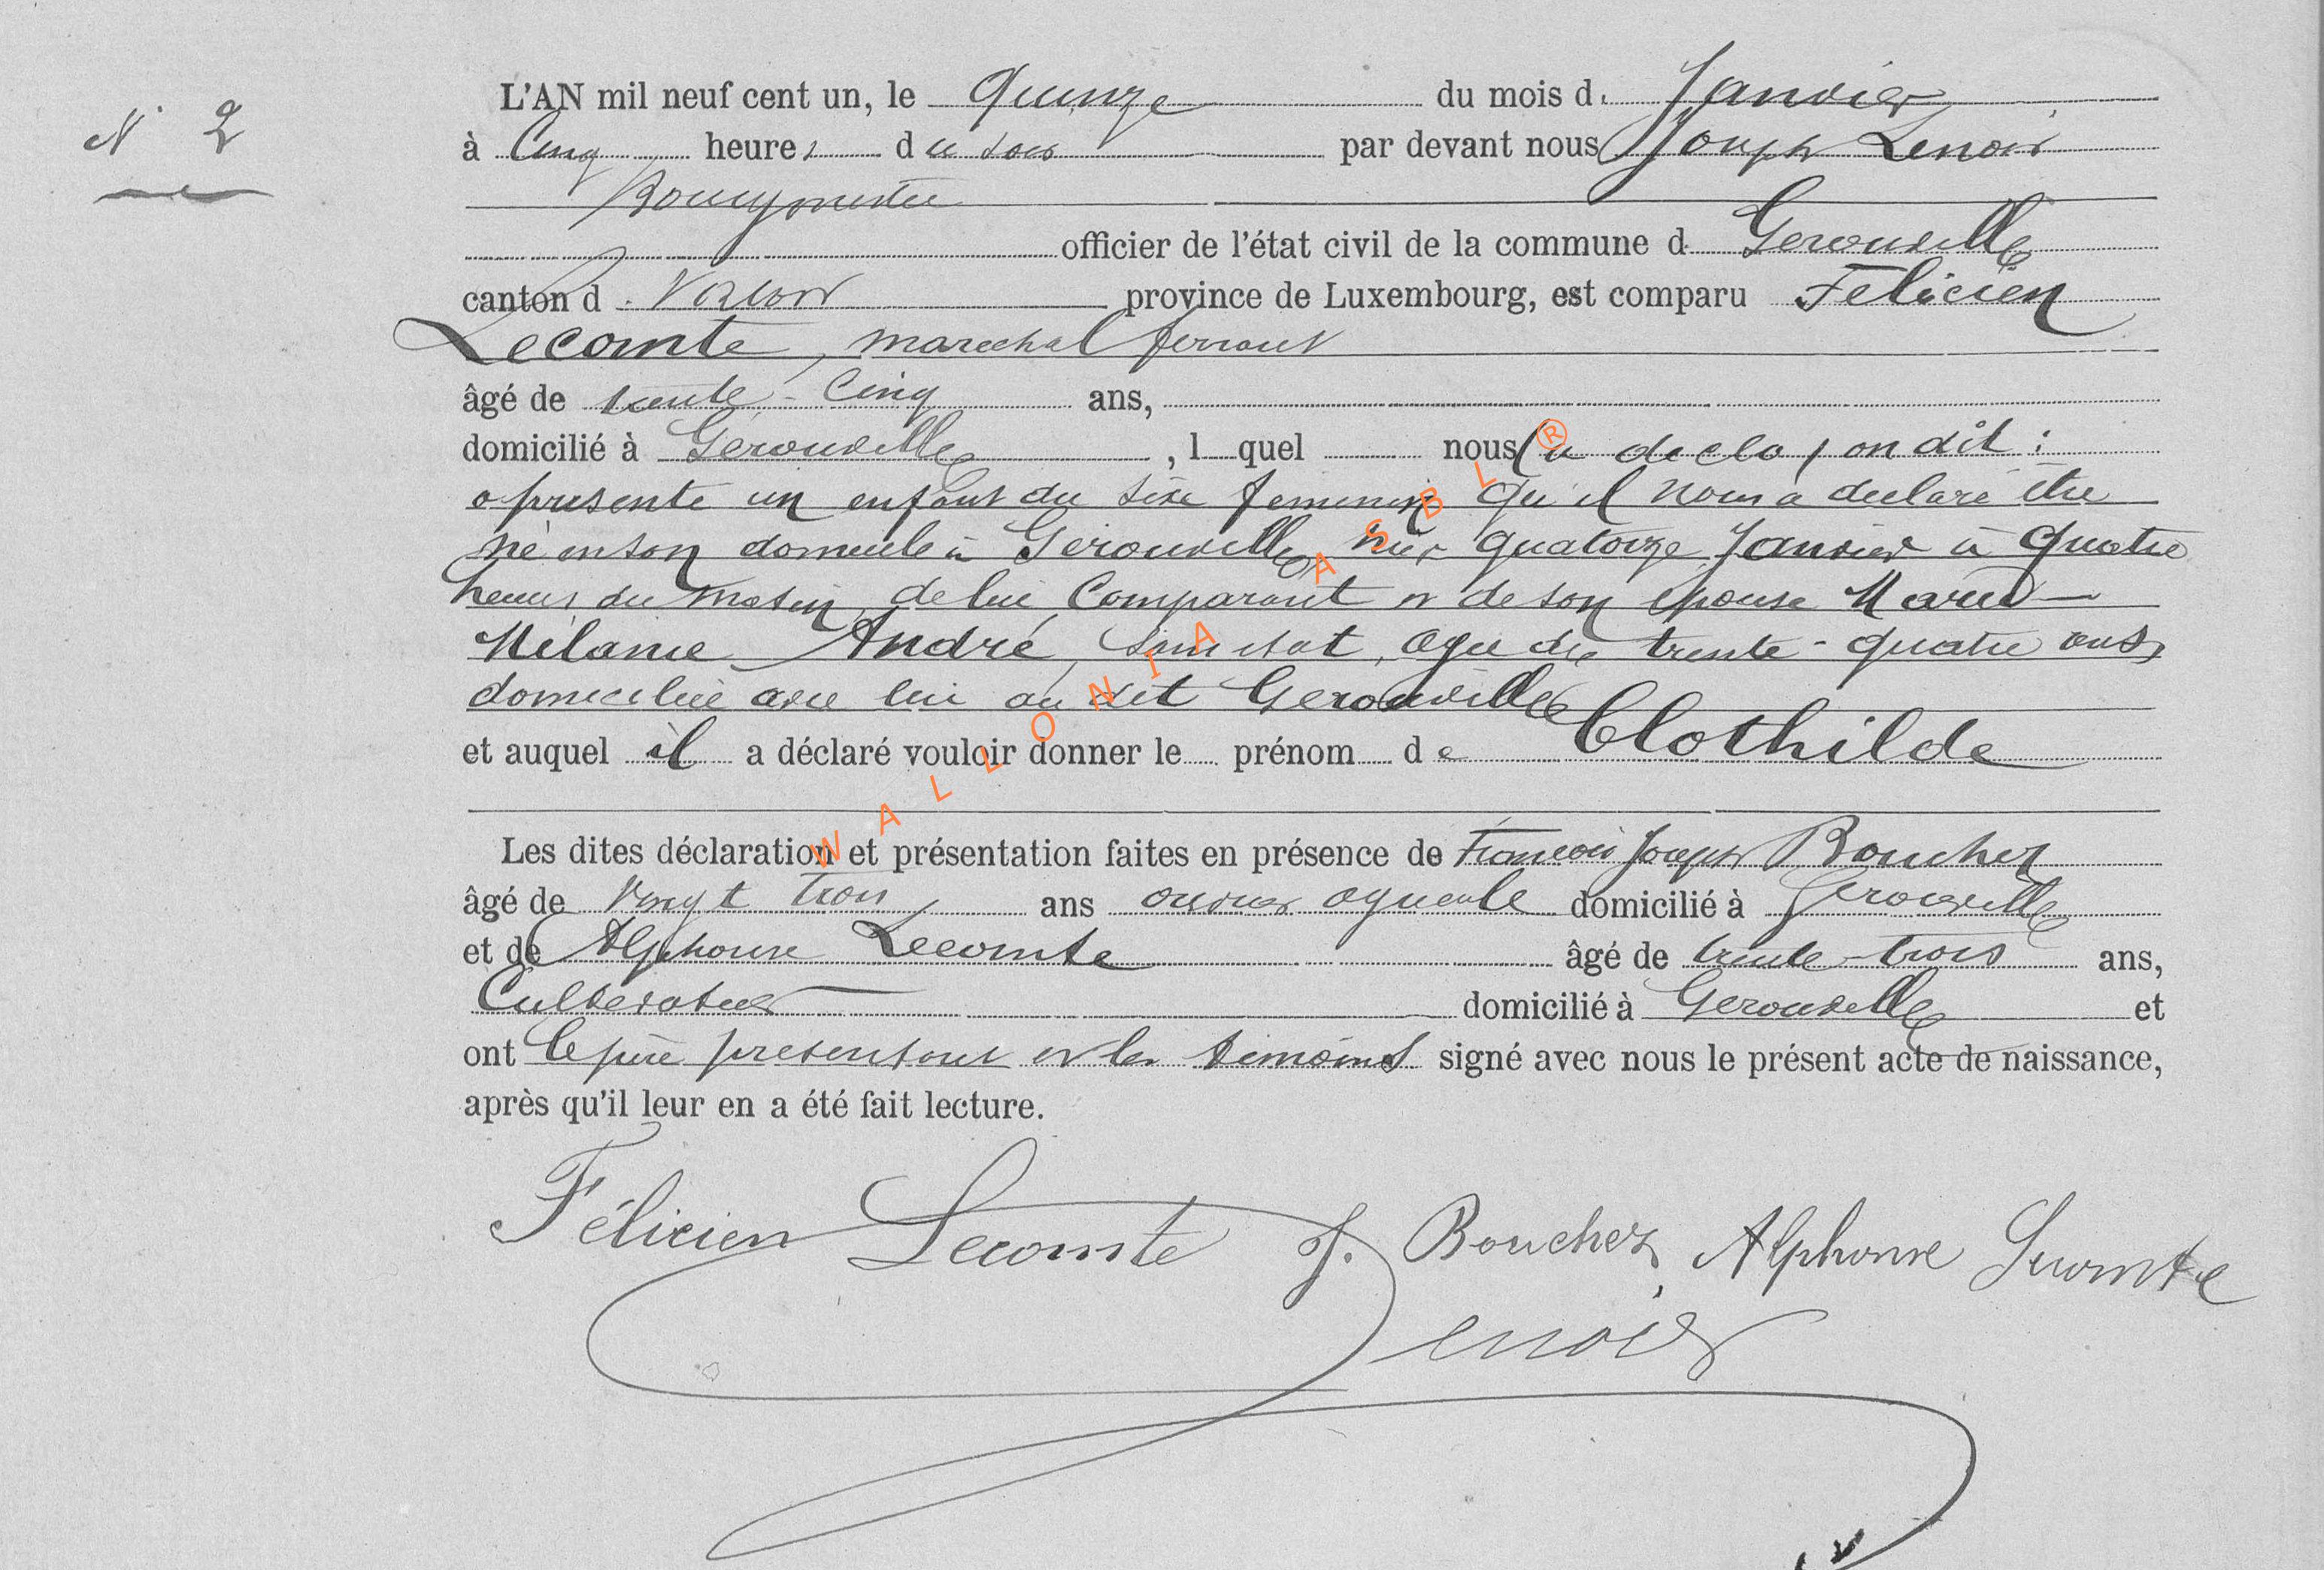 N° 2
L'AN mil neuf cent un, le Quinze du mois d. Janvier
à Cinq heures du soir par devant nous Joseph Lenoir
Bourgmestre
officier de l'état civil de la commune d Gerouville
canton d Virton province de Luxembourg, est comparu Félicien
Lecomte, marechal ferrant
âgé de trente-Cinq ans,
domicilié à Gerouville, l quel nous on dit :
a presenté un enfant du sexe feminin qu'il nous a declaré être
né en son domicile à Gerouville hier quatorze Janvier à quatre
heures du matin, de lui Comparant et de son epouse Marie
Mélanie André, sans etat, agée de trente-quatre ans,
domiciliée avec lui au dit Gerouville
et auquel il a déclaré vouloir donner le prénom de Clothilde
Les dites déclaration et présentation faites en présence de Francois Joseph Bouchez
âgé de Vingt trois ans ouvrier agricole domicilié à Gerouville
et de Alphonse Lecomte âgé de trente-trois ans,
Cultivateur domicilié à Gerouville et
ont le père presentant et les témoins signé avec nous le présent acte de naissance,
après qu'il leur en a été fait lecture.
Félicien Lecomte J. Bouchez Alphonse Lecomte
Lenoir
WALLONIA ASBL ®